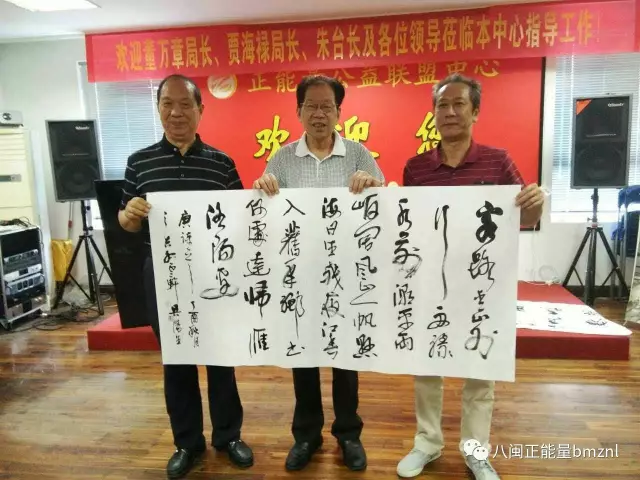 欢迎董万章局长、贾海禄局长、朱台长及各位领导莅临本中心指导工作！
正能量公益联盟中心
欢迎您
客路青山外
行舟綠
水前潮平兩
岸闊風正一帆懸
海日生殘夜江春
入舊年鄉書
何處達歸雁
洛陽邊
唐詩 丁酉秋月
八闽正能量bmznl